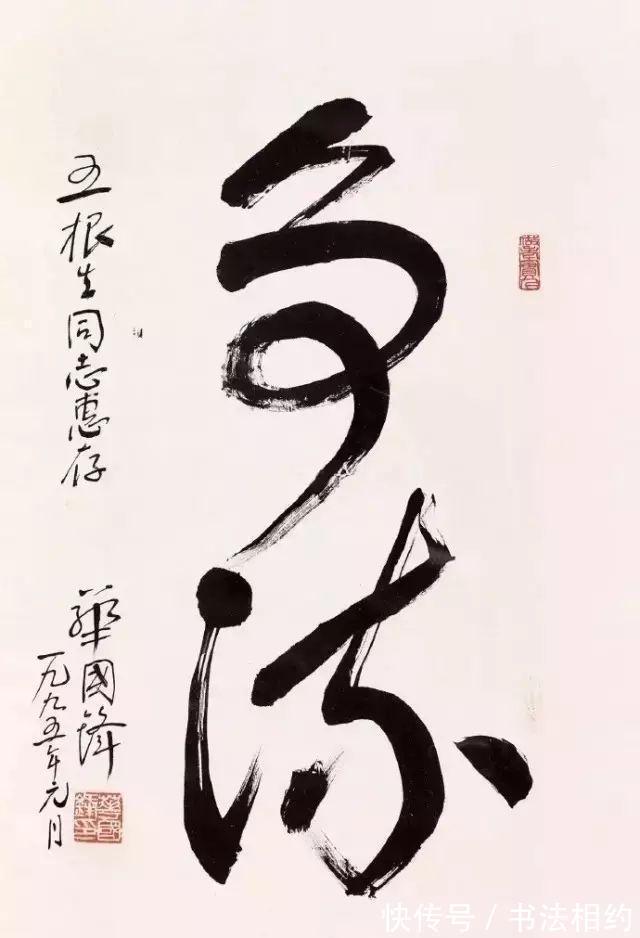 争流
王根生同志惠存
華國鋒
一九九五年元月
快传号 / 书法相约